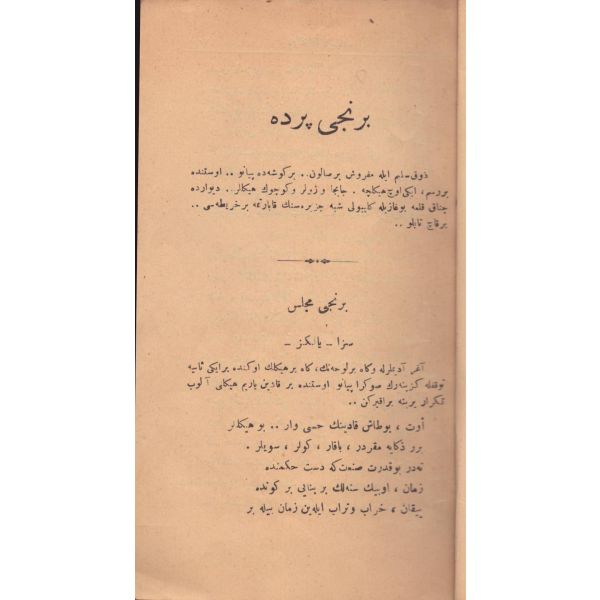 برنجی پرده
ذوق سلیم ایله مفروش بر صالون.. بر كوشه‌ده پیانو .. اوستنده
بر رسم، ایكی اوچ هیكلچه . جابجا وزولر وكوچوك هیكللر.. دیوارده
چناق قلعه بوغازیله كلیبولی شبه جزیره‌سنك قابارتمه بر خریطه‌سی ..
برقاچ تابلو ..
برنجی مجلس
سزا ـ یالكز ـ
آغر آدیملرله وكاه بر لوحه‌نك، كاه بر هیكلك اوكنده بر ایكی ثانیه
توقفله كزینه‌رك صوكرا پیانو اوستنده بر قادین یاریم هیكلی آلوب
تكرار یرینه براقیركن ..
أوت ، بوطاش قادینك حسی وار .. بو هیكللر
برر ذكایه مقردر ، باقار ، كولر ، سویلر .
نه‌در بوقدرت صنعت كه دست حكمنده
زمان ، اوبیك سنه‌لك بر بنایی بر كونده
ییقان ، خراب وتراب ایله‌ین زمان بیله بر